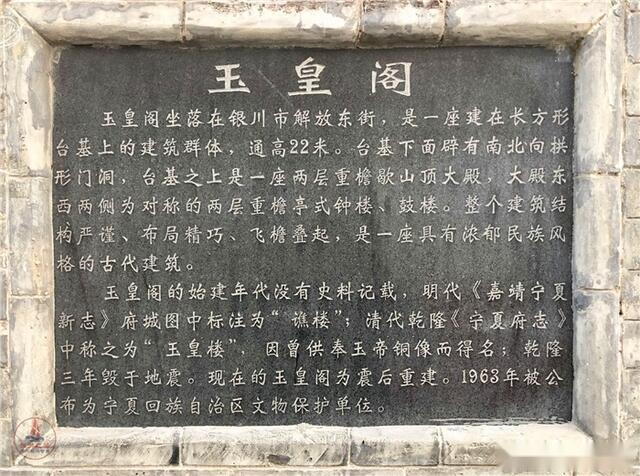 玉皇阁
玉皇阁坐落在银川市解放东街，是一座建在长方形
台基上的建筑群体，通高22米。台基下面辟有南北向拱
形门洞，台基之上是一座两层重檐歇山顶大殿，大殿东
西两侧为对称的两层重檐亭式钟楼、鼓楼。整个建筑结
构严谨、布局精巧、飞檐叠起，是一座具有浓郁民族风
格的古代建筑。
玉皇阁的始建年代没有史料记载，明代《嘉靖宁夏
新志》府城图中标注为“谯楼”；清代乾隆《宁夏府志》
中称之为“玉皇楼”，因曾供奉玉帝铜像而得名；乾隆
三年毁于地震。现在的玉皇阁为震后重建。1963年被公
布为宁夏回族自治区文物保护单位。